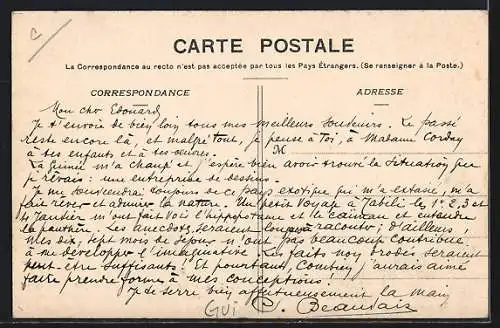 CARTE POSTALE
La Correspondance au recto n'est pas acceptée par tous les Pays Étrangers. (Se renseigner à la Poste.)
CORRESPONDANCE
ADRESSE
Mon cher Edouard
Je t'envoie de bien loin tous mes meilleurs souvenirs. Le passé
reste encore là, et malgré tout, je pense à Toi, à Madame Corday
à tes enfants et à tes
M
La Guinée m'a changé et j'espère bien avoir trouvé la situation que
je rêvais : une entreprise de dessins.
Je me souviendrai toujours de ce pays exotique qui m'a extasié, m'a
fait rêver et admirer la nature. Un petit voyage à le 1er 2, 3 et
4 Janvier m'ont fait voir l'hippopotame et le caïman et entendre
la panthère. Les anecdotes seraient longues à raconter, d'ailleurs,
mes dix, sept mois de séjour n'ont pas beaucoup contribué
à me développer l'imaginative. Les faits non brodés seraient
peut-être suffisants. Et pourtant, combien j'aurais aimé
faire prendre forme à mes conceptions.
Je te serre bien affectueusement la main
GUI
C. Beaudais